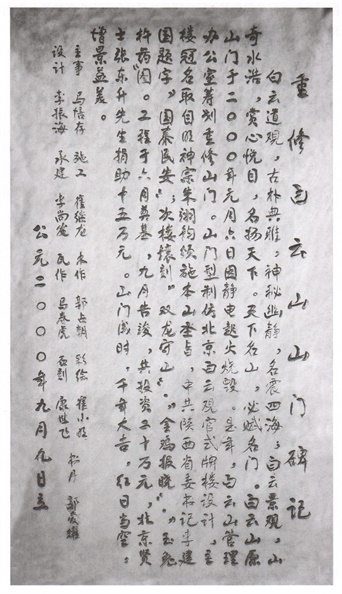 重修白云山山门碑记
白云道观，古朴典雅，神秘幽静，名震四海，白云景观，山
奇水浩，赏心悦目，名扬天下。天下名山，必赋名门。白云山原
山门于二〇〇〇年元月六日因静电起火烧毁。是年，白云山管理
办公室筹划重修山门。山门型制仿北京白云观官式牌楼设计，主
楼冠名取自明神宗朱翊钧颁施本山圣旨，中共陕西省委书记李建
国题字“国泰民安”；次楼镌刻“双龙守山”“金鸡报晓”“玉兔
杵药”图。工程于六月奠基，九月告竣，共投资五十万元，北京贤
士张东升先生捐助十五万元。山门成时，千年大吉，红日当空，
增景益美。
主事 马信存 施工 崔继龙 木作 郭占朝 彩绘 崔小
设计 李振海 承建 李尚发 瓦作 马泰虎 石刻 康世飞
公元二〇〇〇年九月九日立